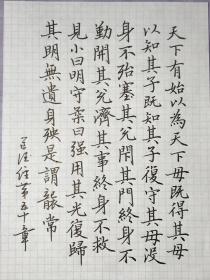 天下有始以為天下母既得其母
以知其子既知其子復守其母没
身不殆塞其兌閉其門終身不
勤開其兌濟其事終身不救
見小曰明守柔曰强用其光復歸
其明無遺身殃是謂襲常
道德经第五十章